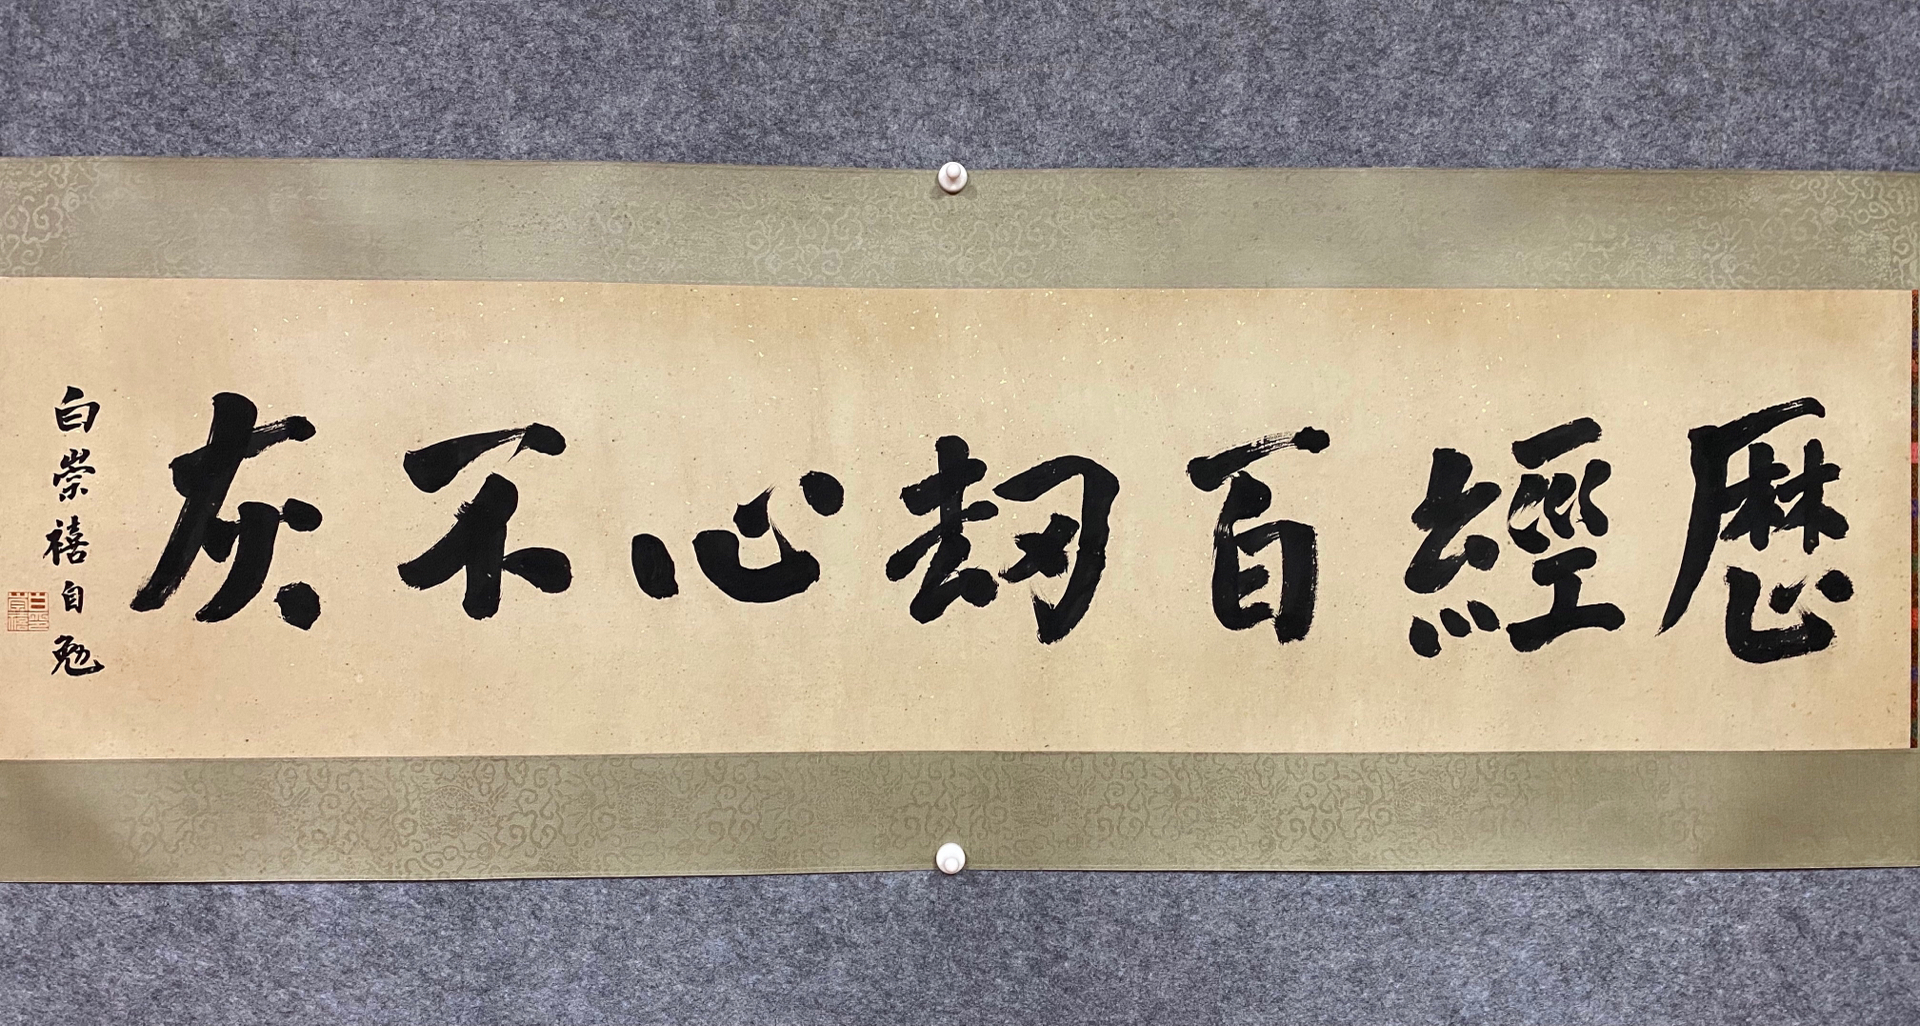 歷經百劫心不灰
白崇禧自勉
白崇禧